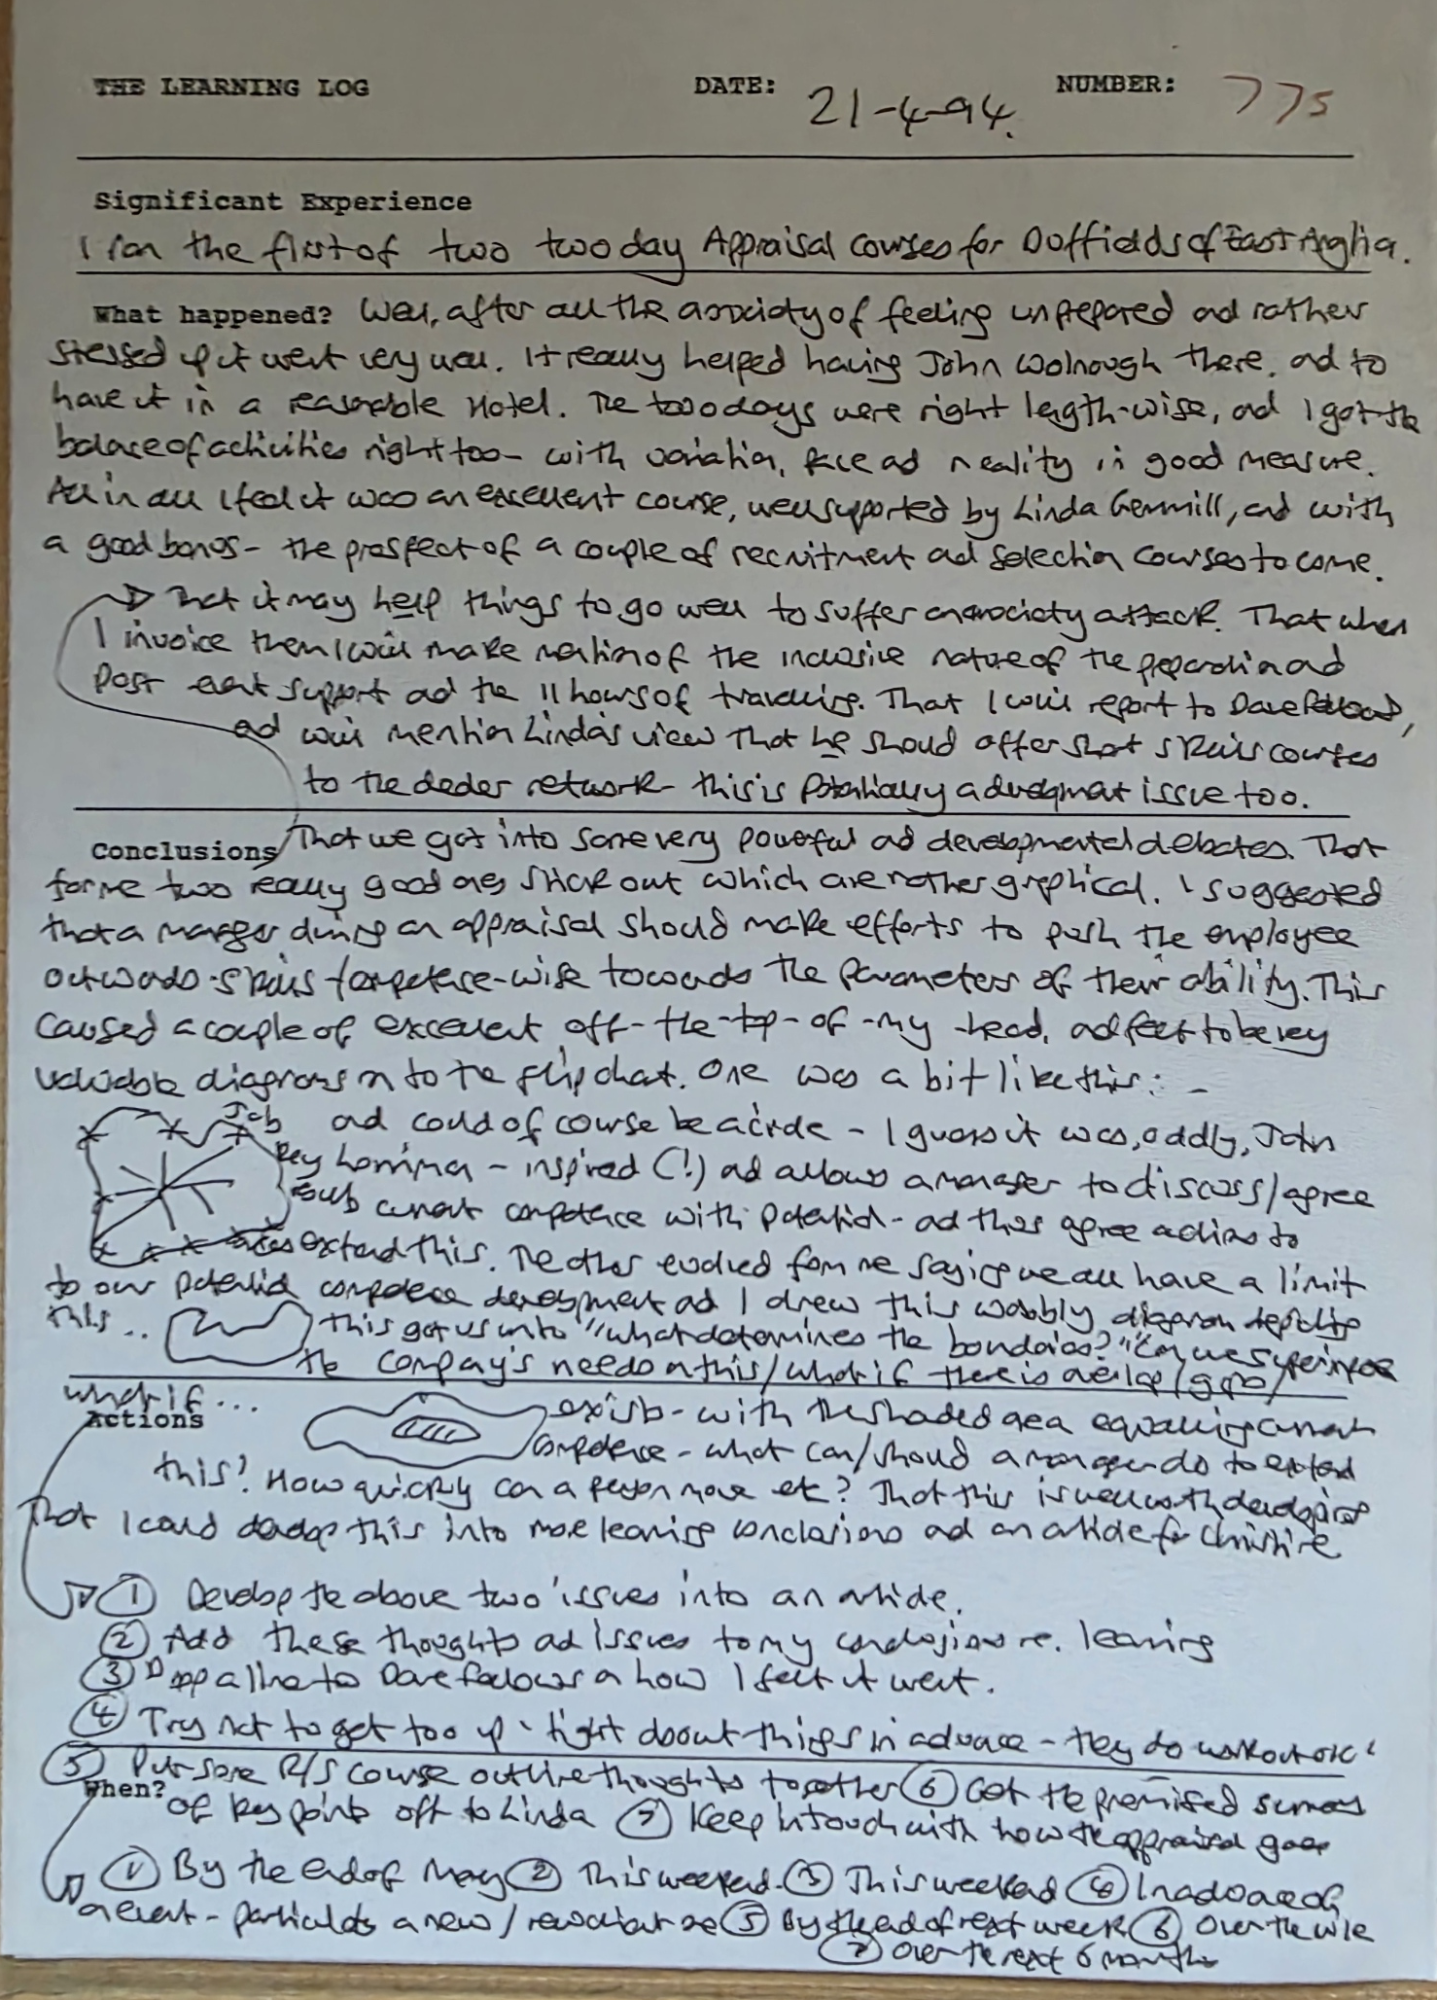 THE LEARNING LOG DATE: 21-4-94. NUMBER: 775
Significant Experience
I ran the first of two two day Appraisal Courses for Duffields of East Anglia.
What happened? Well, after all the anxiety of feeling unprepared and rather
stressed up it went very well. It really helped having John Wolnough there, and to
have it in a reasonable Hotel. The two days were right length-wise, and I got the
balance of activities right too - with variation, pace and reality in good measure.
All in all I feel it was an excellent course, well supported by Linda Gemmill, and with
a good bonus - the prospect of a couple of recruitment and selection courses to come.
That it may help things to go well to suffer an anxiety attack. That when
I invoice them I will make mention of the inclusive nature of the preparation and
post event support and the 11 hours of travelling. That I will report to Dave
and will mention Linda's view that he should offer short skills courses
to the dealer network - this is potentially a development issue too.
Conclusions That we got into some very powerful and developmental debates. That
for me two really good ones stick out which are rather graphical. I suggested
that a manager during an appraisal should make efforts to push the employee
outwards - skills/competence-wise towards the parameters of their ability. This
caused a couple of excellent off-the-top-of-my-head, and felt to be very
valuable diagrams on to the flipchart. One was a bit like this: -
Job and could of course be a circle - I guess it was, oddly, John
Key - inspired (!) and allows a manager to discuss/agree
current competence with potential - and thus agree actions to
extend this. The other evolved from me saying we all have a limit
to our potential competence development and I drew this wobbly diagram depicting
this .. this got us into "what determines the boundaries?" "Can we superimpose
the company's needs on this/what if there is overlap/gaps/
what if ...
Actions exists - with the shaded area equalling current
competence - what can/should a manager do to extend
this? How quickly can a person move etc? That this is well worth developing
That I could develop this into more learning conclusions and an article for Christine
① Develop the above two issues into an article.
② Add these thoughts and issues to my conclusions re. learning
③ Drop a line to Dave Fellows on how I felt it went.
④ Try not to get too up-tight about things in advance - they do work out ok!
⑤ Put some R/S course outline thoughts together ⑥ Get the promised summary
When? of key points off to Linda ⑦ Keep in touch with how the appraisal goes
① By the end of May ② This weekend. ③ This weekend ④ In advance of
an event - particularly a new/ one ⑤ By the end of next week ⑥ Over the
⑦ Over the next 6 months